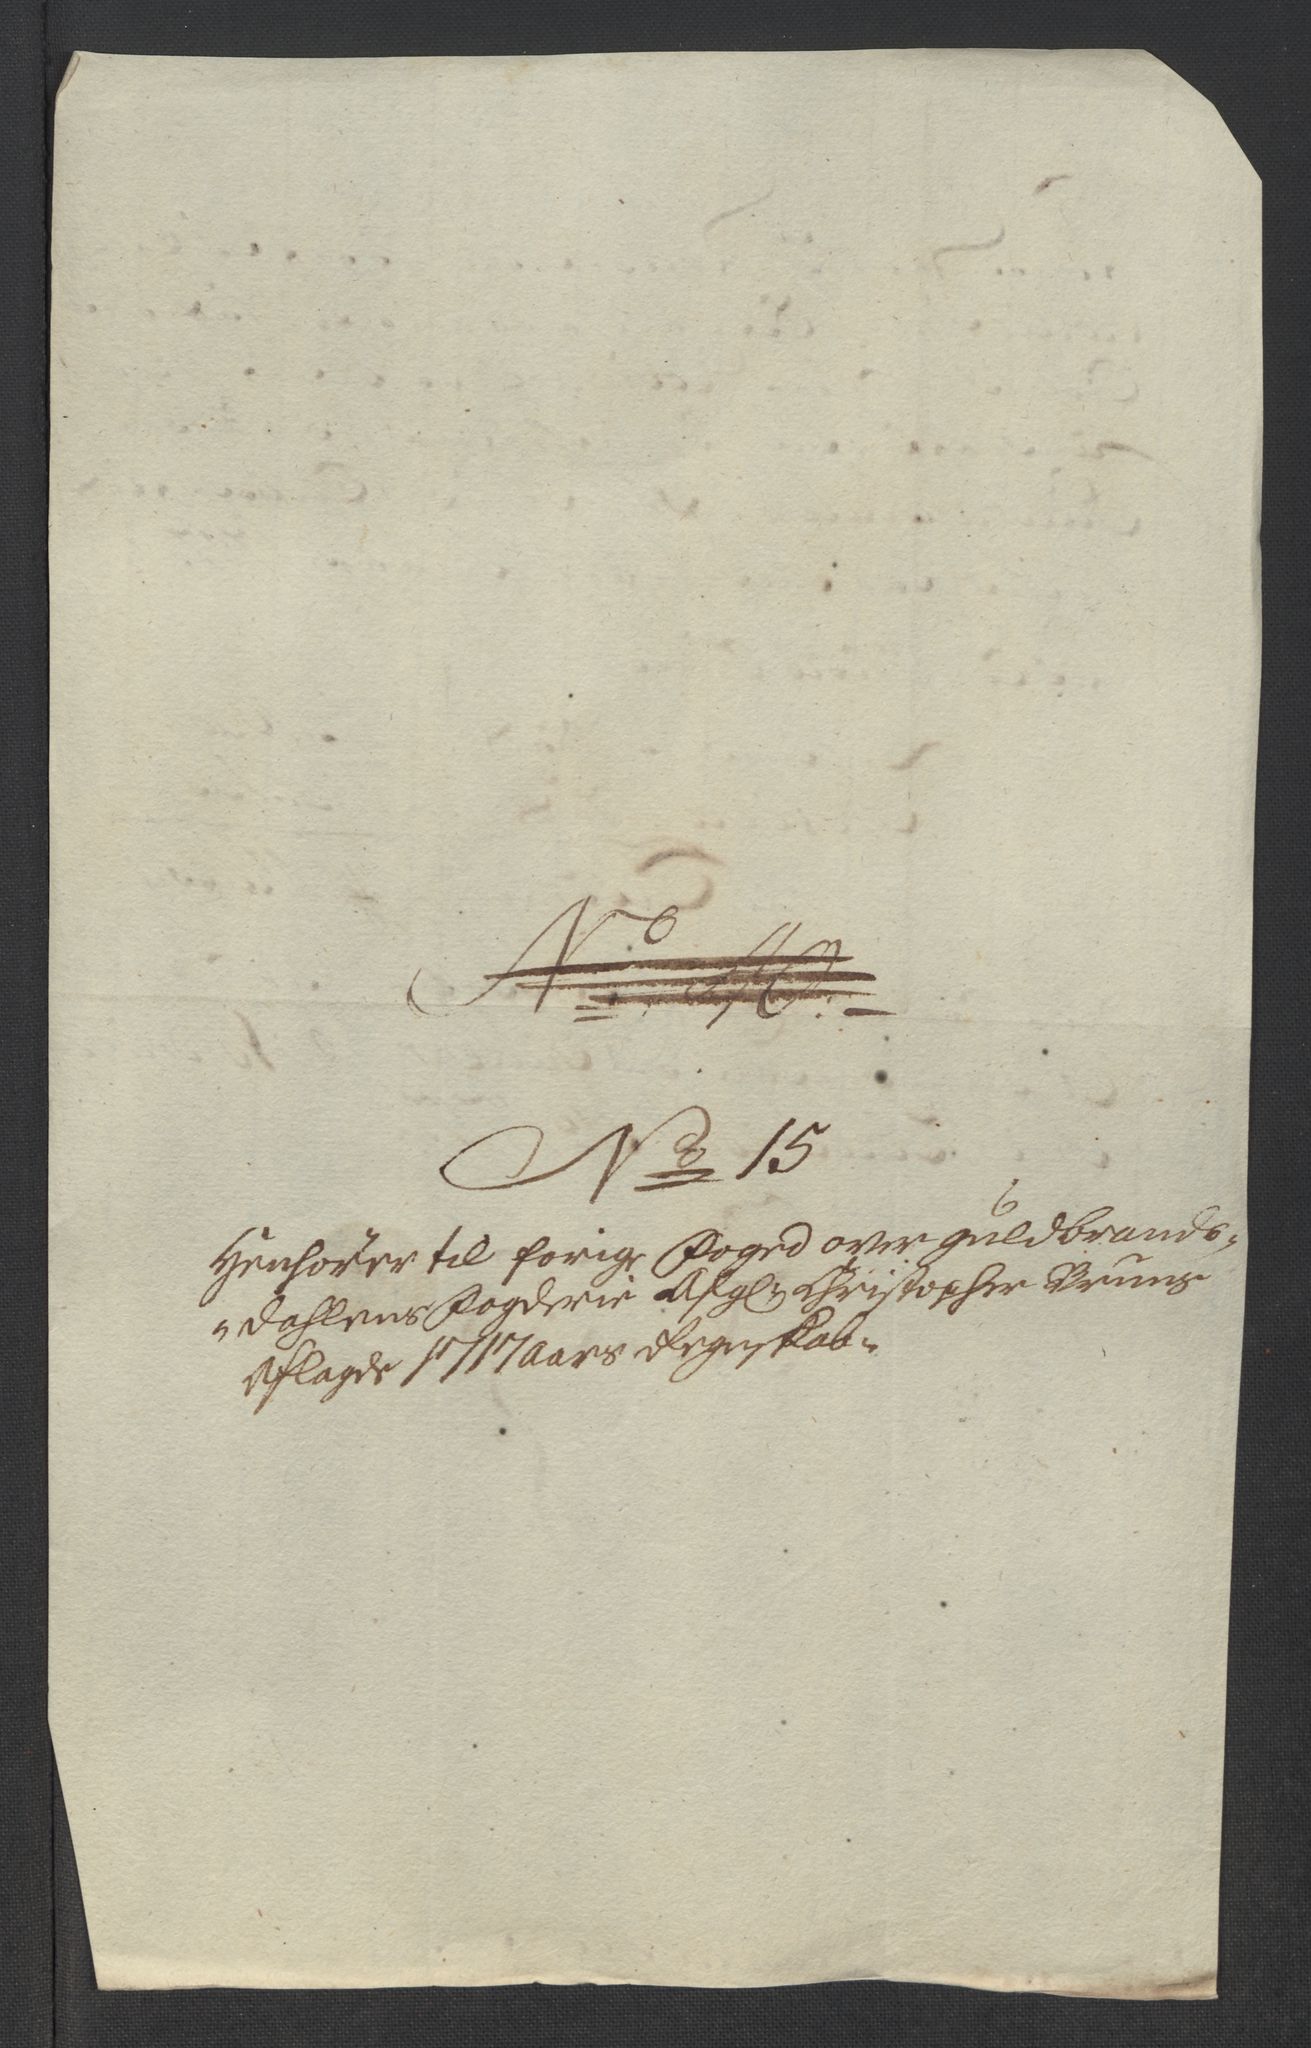 No 40.
No 15
Henhører til forige Foged over guldbrands-
dahlens Fogderie Afgl: Christopher Bruuns
Aflagde 1717 Aars Regnskab.